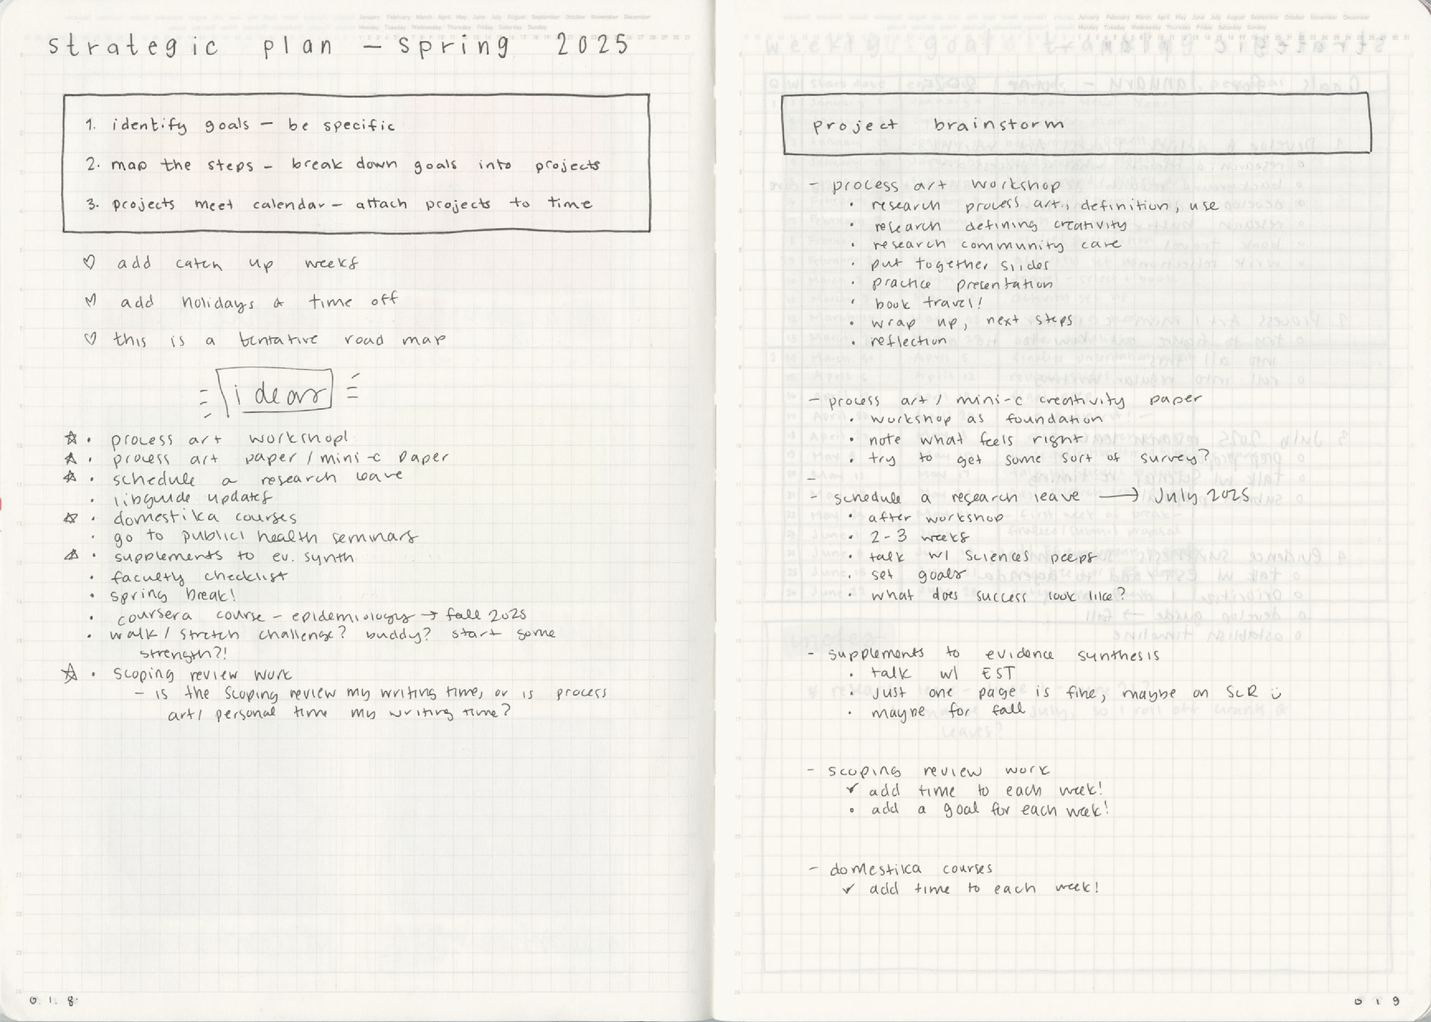 strategic plan – spring 2025
1. identify goals – be specific
2. map the steps – break down goals into projects
3. projects meet calendar – attach projects to time
♡ add catch up weeks
♡ add holidays & time off
♡ this is a tentative road map
ideas
☆ · process art workshop!
☆ · process art paper / mini-c paper
☆ · schedule a research leave
· libguide updates
☆ · domestika courses
· go to public health seminars
☆ · supplements to ev. synth
· faculty checklist
· spring break!
· coursera course – epidemiology → fall 2025
· walk / stretch challenge? buddy? start some
strength?!
☆ · scoping review work
– is the scoping review my writing time, or is process
art/ personal time my writing time?
0 1 8
project brainstorm
– process art workshop
· research process art, definition, use
· research defining creativity
· research community care
· put together slides
· practice presentation
· book travel!
· wrap up, next steps
· reflection
– process art / mini-c creativity paper
· workshop as foundation
· note what feels right
· try to get some sort of survey?
–
– schedule a research leave → July 2025
· after workshop
· 2-3 weeks
· talk w/ Sciences peeps
· set goals
· what does success look like?
– supplements to evidence synthesis
· talk w/ EST
· just one page is fine, maybe on ScR ü
· maybe for fall
– scoping review work
✓ add time to each week!
· add a goal for each week!
– domestika courses
✓ add time to each week!
0 1 9